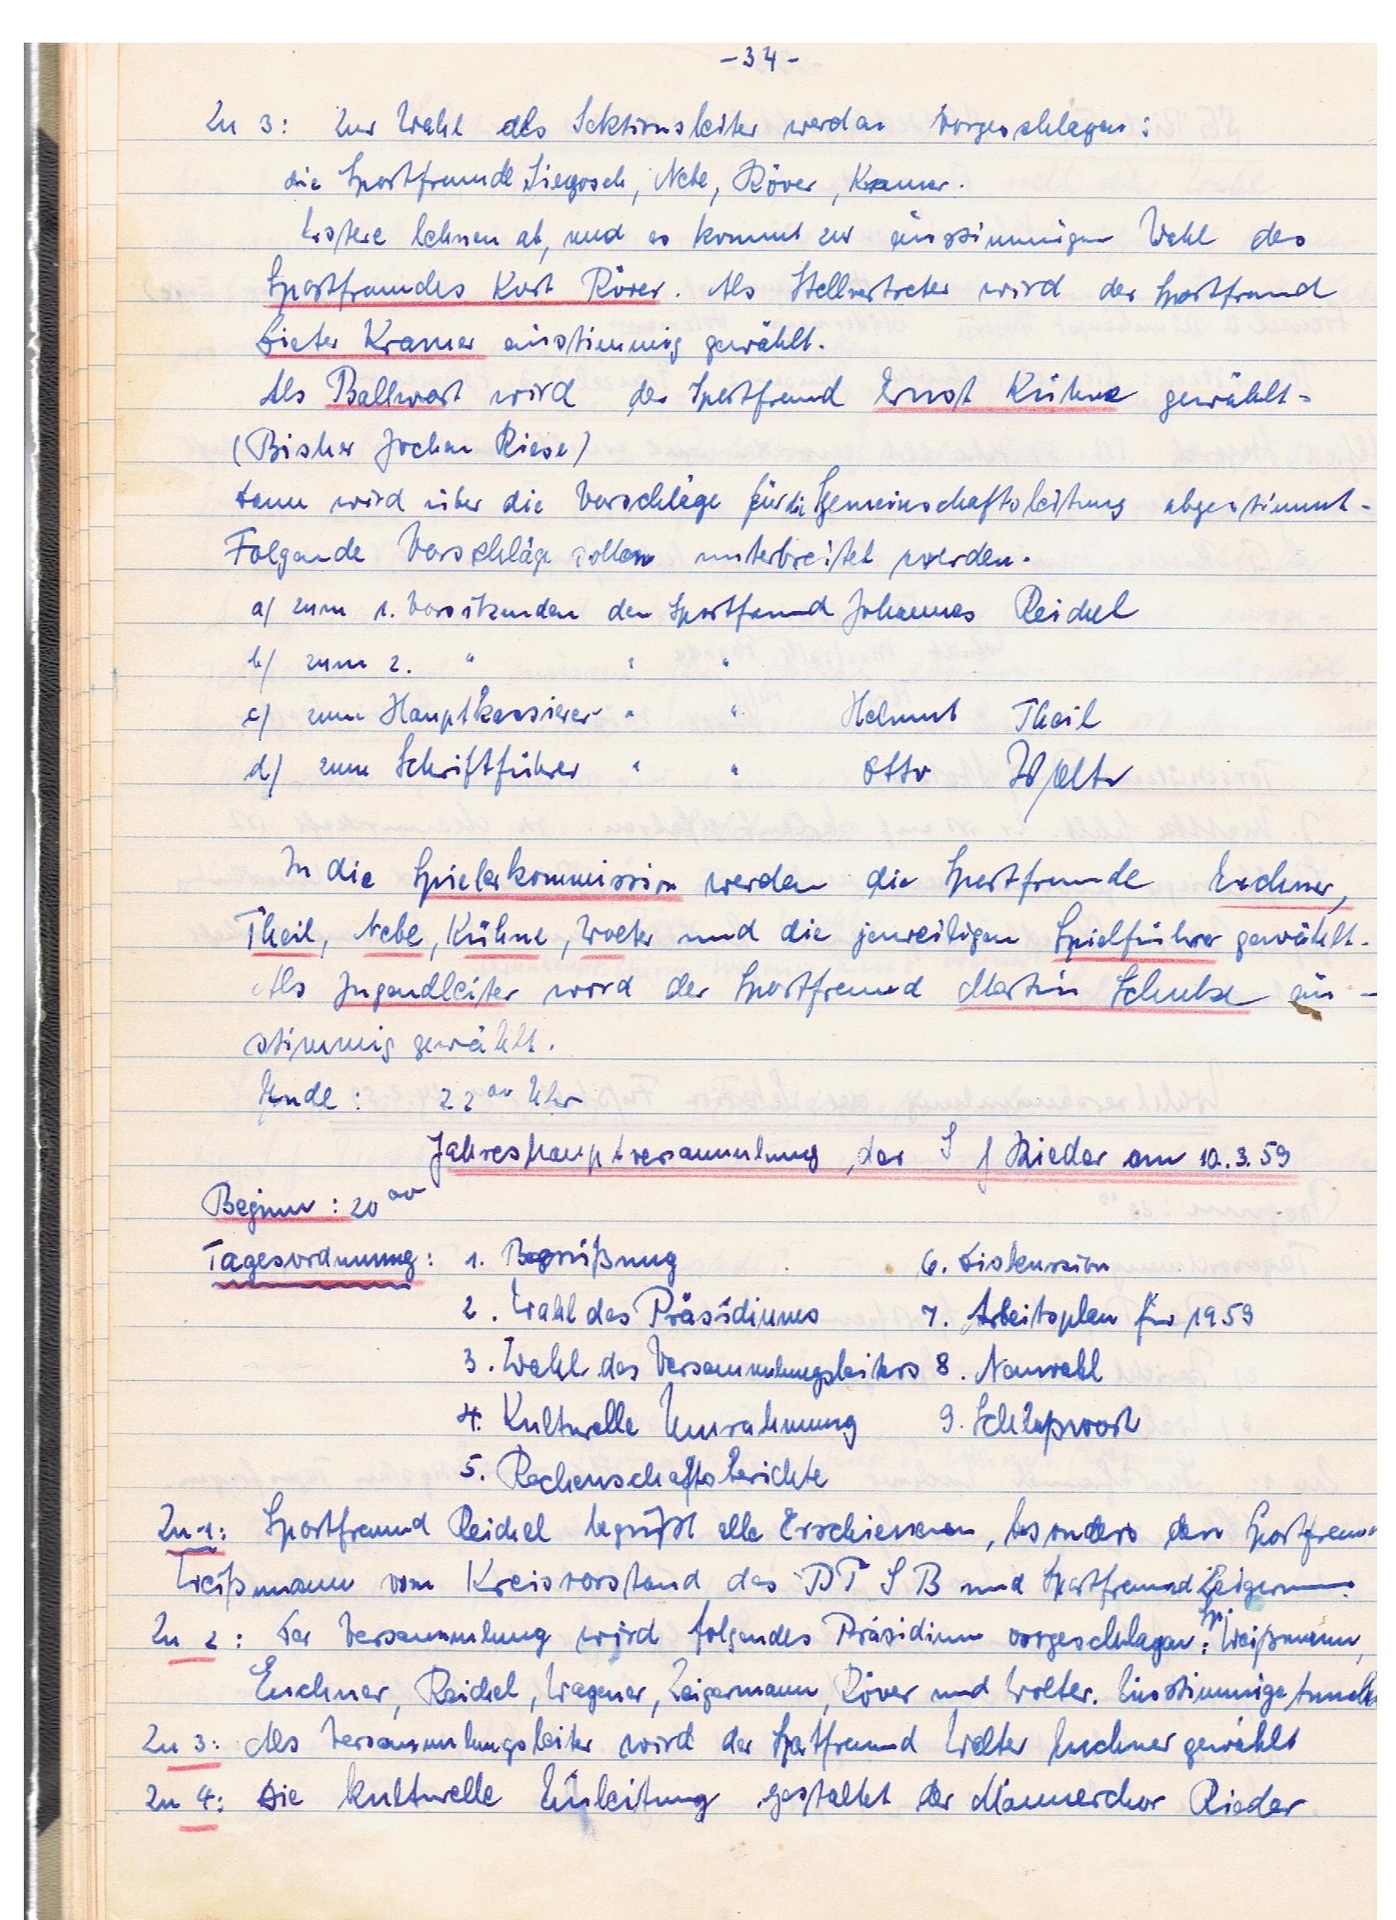 - 34 -
Zu 3: Zur Wahl des Sektionsleiter werden vorgeschlagen:
die Sportfreunde Liegosch, Nebe, Röver, Kramer.
Erstere lehnen ab, und es kommt zur einstimmigen Wahl des
Sportfreundes Kurt Röver. Als Stellvertreter wird der Sportfreund
Dieter Kramer einstimmig gewählt.
Als Ballwart wird der Sportfreund Ernst Kühne gewählt.
(Bisher Jochen Riese)
Dann wird über die Vorschläge für die Gemeinschaftsleitung abgestimmt.
Folgende Vorschläge sollen unterbreitet werden.
a) zum 1. Vorsitzenden der Sportfreund Johannes Reichel
b) zum 2. " " "
c) zum Hauptkassierer " " Helmut Theil
d) zum Schriftführer " " Otto Wolter
In die Spielerkommission werden die Sportfreunde Enchner,
Theil, Nebe, Kühne, Wolter und die jeweiligen Spielführer gewählt.
Als Jugendleiter wird der Sportfreund Martin Schulze ein-
stimmig gewählt.
Ende: 22 00 Uhr
Jahreshauptversammlung der S G Rieder am 10.3.59
Beginn: 20 00
Tagesordnung: 1. Begrüßung 6. Diskussion
2. Wahl des Präsidiums 7. Arbeitsplan für 1959
3. Wahl des Versammlungsleiters 8. Neuwahl
4. Kulturelle Umrahmung 9. Schlußwort
5. Rechenschaftsberichte
Zu 1: Sportfreund Reichel begrüßt alle Erschienenen, besonders den Sportfreund
Weißmann vom Kreisvorstand des DTSB und Sportfreund Zeigermann.
Zu 2: Der Versammlung wird folgendes Präsidium vorgeschlagen: Sp. Weißmann,
Enchner, Reichel, Wagener, Zeigermann, Röver und Wolter. Einstimmige
Zu 3: Als Versammlungsleiter wird der Sportfreund Walter Enchner gewählt
Zu 4: Die kulturelle Einleitung gestaltet der Männerchor Rieder